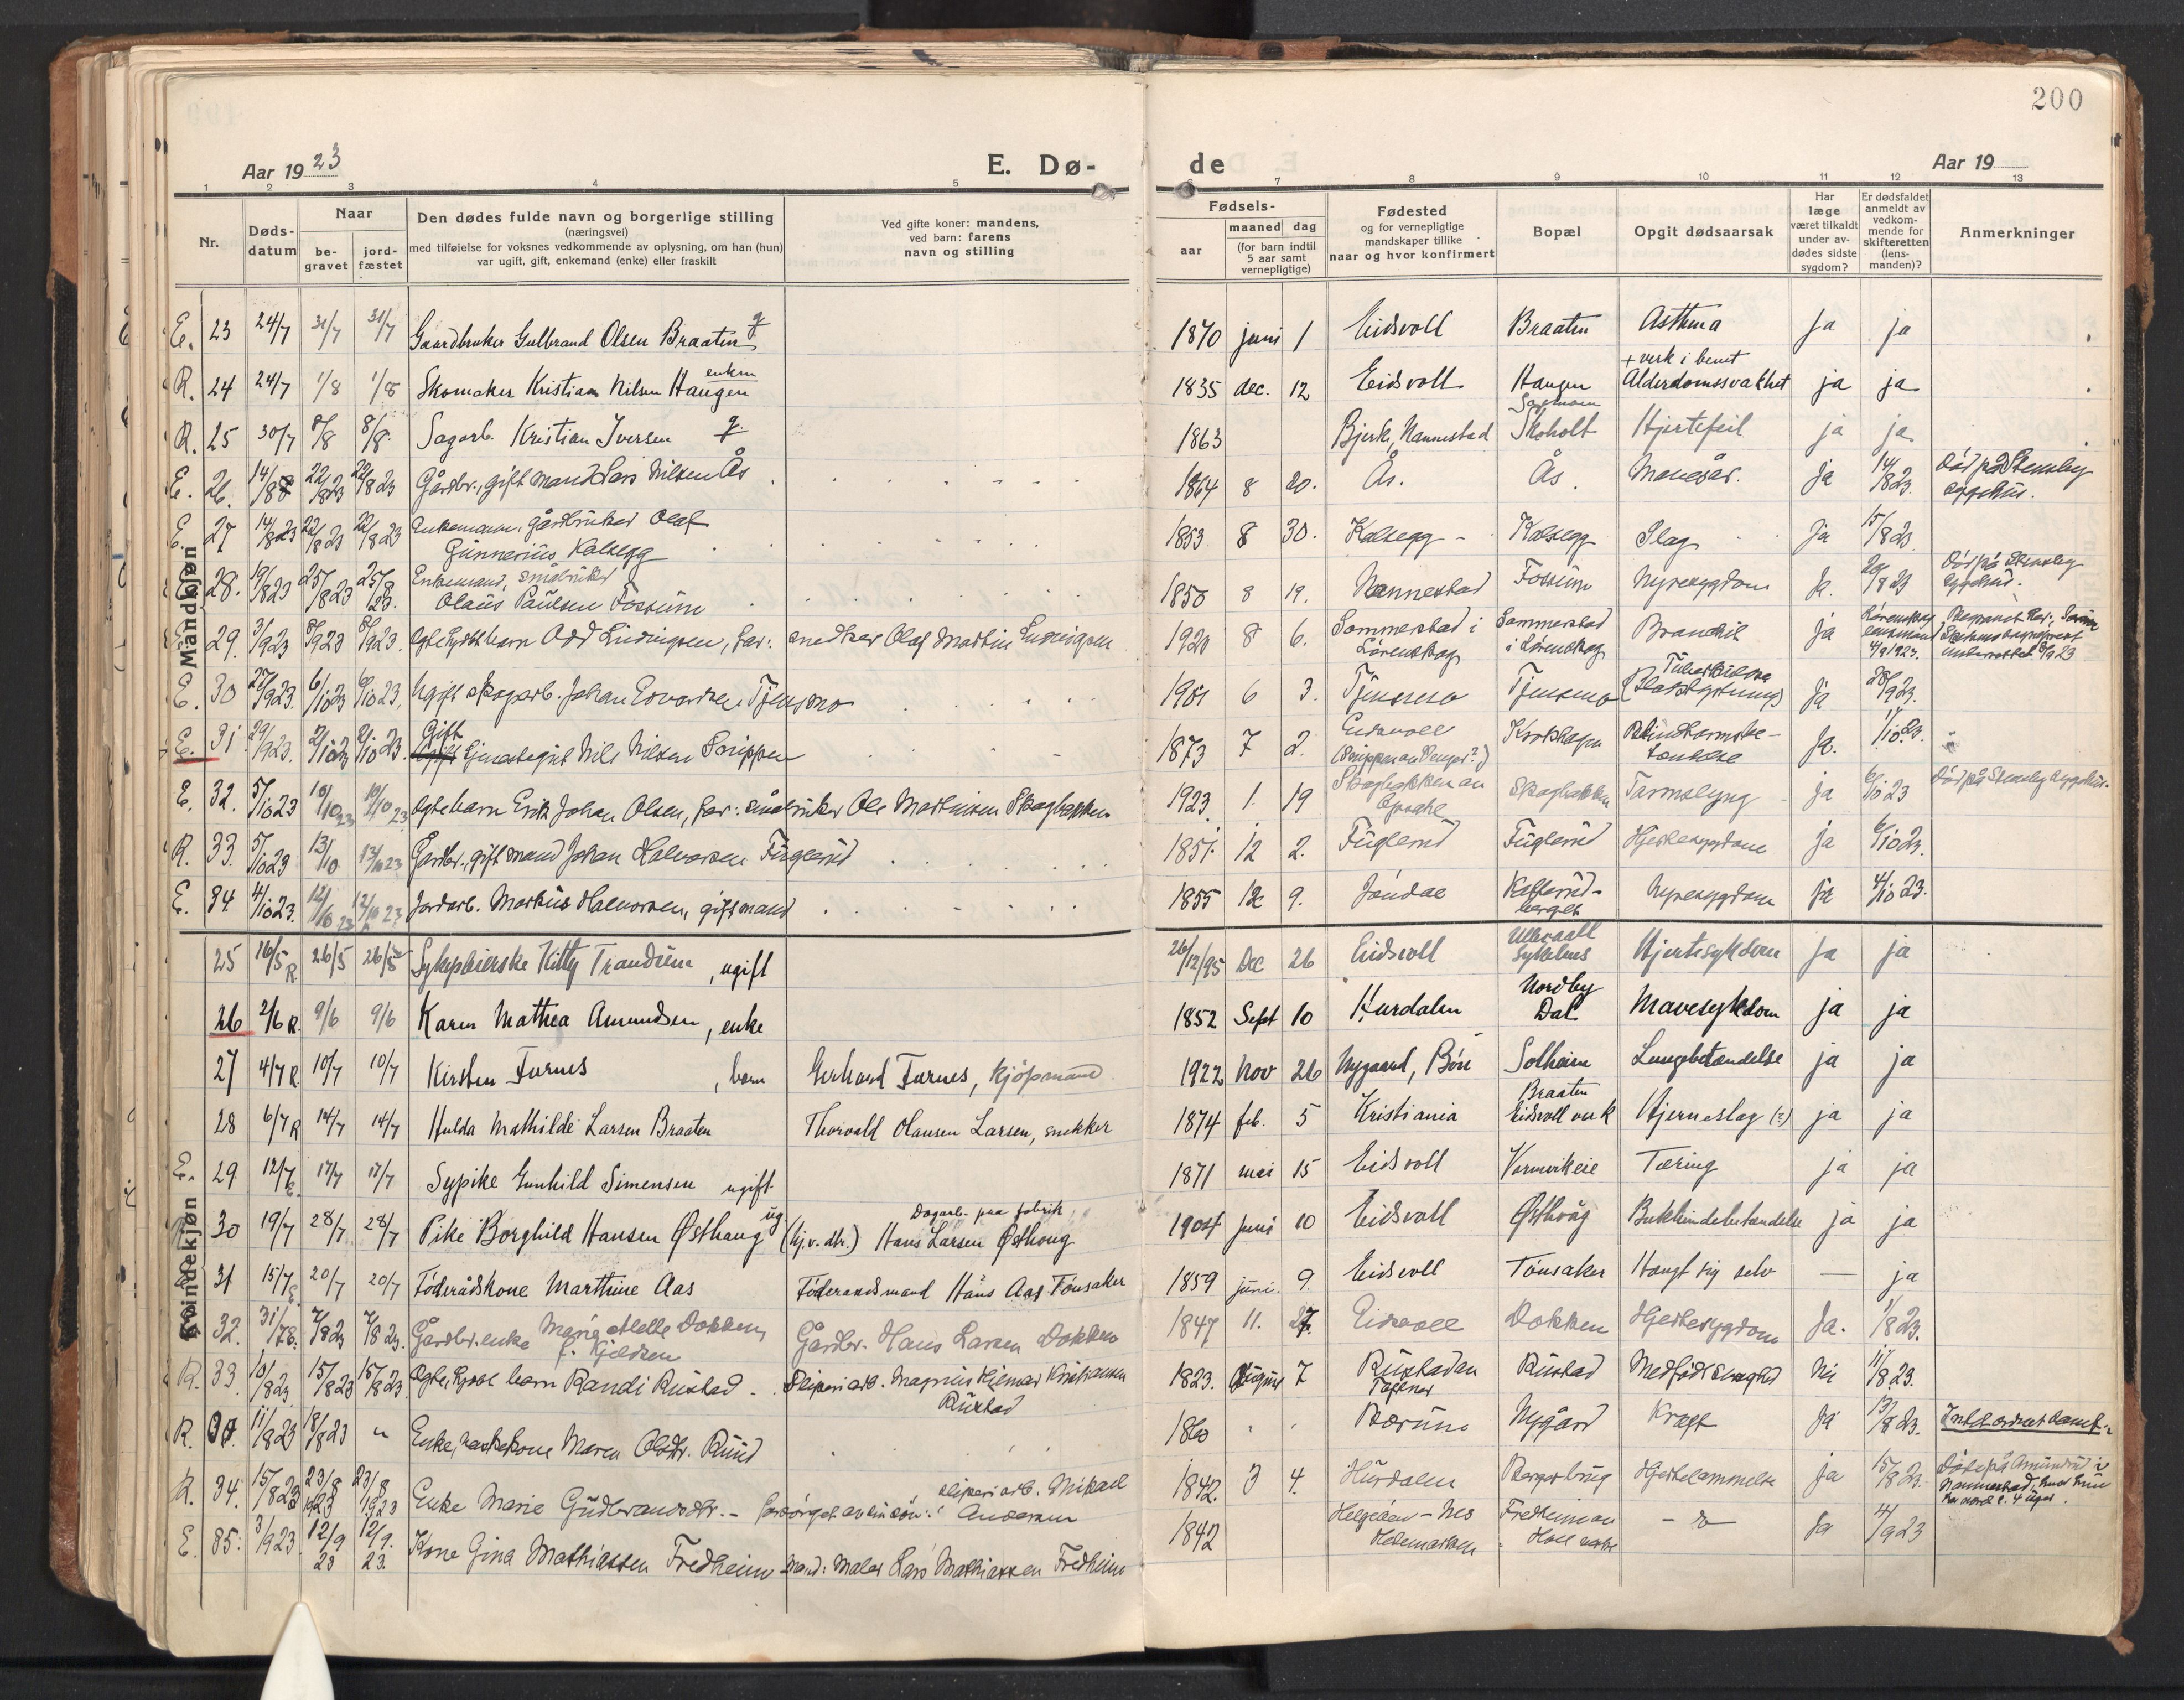 200
Aar 1923 E. Dø- de Aar 19
1 2 3 4 5 6 7 8 9 10 11 12 13
Nr.
Døds-datum
Naar
be-gravet
jord-fæstet
Den dødes fulde navn og borgerlige stilling
(næringsvei)
med tilføielse for voksnes vedkommende av oplysning, om han (hun)
var ugift, gift, enkemand (enke) eller fraskilt
Ved gifte koner: mandens,
ved barn: farens
navn og stilling
Fødsels-
aar
maaned dag
(for barn indtil
5 aar samt
vernepligtige)
Fødested
og for vernepligtige
mandskaper tillike
naar og hvor konfirmert
Bopæl
Opgit dødsaarsak
Har
læge
været tilkaldt
under av-
dødes sidste
sygdom?
Er dødsfaldet
anmeldt av
vedkom-
mende for
skifteretten
(lens-
manden)?
Anmerkninger
Mandkjøn
E. 23 24/7 31/7 31/7 Gaardbruker Gulbrand Olsen Braaten g 1870 juni 1 Eidsvoll Braaten Asthma Ja ja
R. 24 24/7 1/8 1/8 Skomaker Kristian Nilsen Haugen enkem 1835 dec. 12 Eidsvoll Haugen + verk i benet Alderdomssvakhet ja ja
R. 25 30/7 8/8 8/8 Sagarb. Kristian Iversen g. 1863 Bjerk, Nannestad Skoholt Hjertefeil ja ja
E. 26. 14/8 22/8 23 22/8 23 Gårdbr., gift mand Lars Nilsen Ås 1864 8 20. Ås. Ås. Mavesår. Ja 14/8 23. Død på Stensby sygehus.
E. 27 14/8 23 22/8 23 22/8 23 Enkemann, gårdbruker Olaf Gunnerius Kalsegg 1853 8 30. Kalsegg Kalsegg Slag Ja 15/8 23
28. 19/8 23 25/8 23 25/8 23. Enkemand, småbruker Olaus Paulsen Fossum 1850 8 19. Nannestad Fossum Nyresygdom Ja. 20/8 23 Død på Stensby sygehus.
29. 3/9 23 8/9 23 8/9 23. Ludvigsen, far: snedker Olaf Martin Ludvigsen 1920 8 6. Sommerstad i Lørenskog Sommerstad i Lørenskog Ja
E. 30 27/9 23. 6/10 23 6/10 23. Ugift skogarb. Johan Edvardsen Tjensmo 1901 6 3. Tjensmo Tjensmo Ja 28/9 23.
E. 31. 29/9 23. Gift Nils Nilsen 1873 7 2. Ja. 1/10 23.
E. 32. 5/10 23 10/10 23 10/10 23 Ægte barn Erik Johan Olsen, far: småbruker Ole Martinsen Skogbakken 1923. 1. 19 Skogbakken Tarmslyng Ja 6/10 23 Død på Stensby sygehus.
R. 33. 5/10 23 13/10 13/10 23 Gårdbr., gift mand Johan Halvorsen Fuglerud 1851. 12 2. Fuglerud Fuglerud Hjertesygdom ja 6/10 23.
E. 34. 4/10 23. 12/10 23 12/10 23 Jordarb. Markus Halvorsen, gift mand 1855 12 9. Jøndal Nyresygdom Ja 4/10 23.
Kvindekjøn
25 16/5 R. 26/5 26/5 Sykepleierske Kitty Trandum, ugift 26/12/95 Dec 26 Eidsvoll Ullevaall Sykehus Hjertesykdom Ja ja
26 2/6 R. 9/6 9/6 Karen Mathea Amundsen, enke 1852 Sept 10 Hurdalen Nordby Dal Mavesykdom ja ja
27 4/7 R. 10/7 10/7 Kirsten Furnes, barn Gerhard Furnes, kjøpmand 1922 Nov 26 Nygaard, Bøn Solheim Lungebetændelse ja ja
28 6/7 R 14/7 14/7 Hulda Mathilde Larsen Braaten Thorvald Olausen Larsen, snekker 1874 feb. 5 Kristiania Braaten Eidsvoll verk Hjerneslag (?) ja ja
E. 29 12/7 E. 17/7 17/7 Sypike Gunhild Simensen ugift 1871 mai 15 Eidsvoll Vormvikeie Tæring ja ja
30 19/7 28/7 28/7 Pike Borghild Hansen Østhaug ug (hj.v. dtr.) Dagarb. paa fabrik Hans Larsen Østhoug 1904 juni 10 Eidsvoll Østhoug Bukhindebetændelse ja ja
31 15/7 E. 20/7 20/7 Föderådskone Marthine Aas Föderaadsmand Hans Aas Tönsaker 1859 juni. 9. Eidsvoll Tönsaker Hengt sig selv — ja
32. 31/7 E. 7/8 23 7/8 23. Gårdbr.enke Marie Mette Dokken, f. Kjeldsen Gårdbr. Hans Larsen Dokken 1847 11. 27. Eidsvoll Dokken Hjertesygdom Ja. 1/8 23.
R. 33. 10/8 23. 15/8 23 15/8 23 barn Randi Rustad Sliperiarb. Magnus Hilmar Kristiansen Rustad 1823. August 7 Rustaden Rustad Medfødt svaghed Nei 11/8 23.
R. 11/8 23 18/8 23 " Enke, Maren Olsdtr. Ruud 1860 Bærum Nygård Kræft Ja 13/8 23.
R. 34. 15/8 23 23/8 1923 23/8 1923 Enke Marie Gudbrandsdtr. - forsørget av sin søn: sliperiarb. Mikael Andersen 1842. 3 4. Hurdalen Hjertelammelse ja 15/8 23. Døde på Amundrud i Nannestad,
E. 35: 3/9 23 12/9 23 12/9. 23. Kone Gina Mathiassen Fredheim Mand: Maler Lars Mathiassen Fredheim 1842 Nes Hedemarken Fredheim Ja 4/9 23